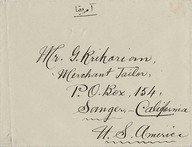 أمريقا
Mr. G. Krikorian,
Merchant Tailor,
P.O. Box, 154,
Sanger, California
U. S. America